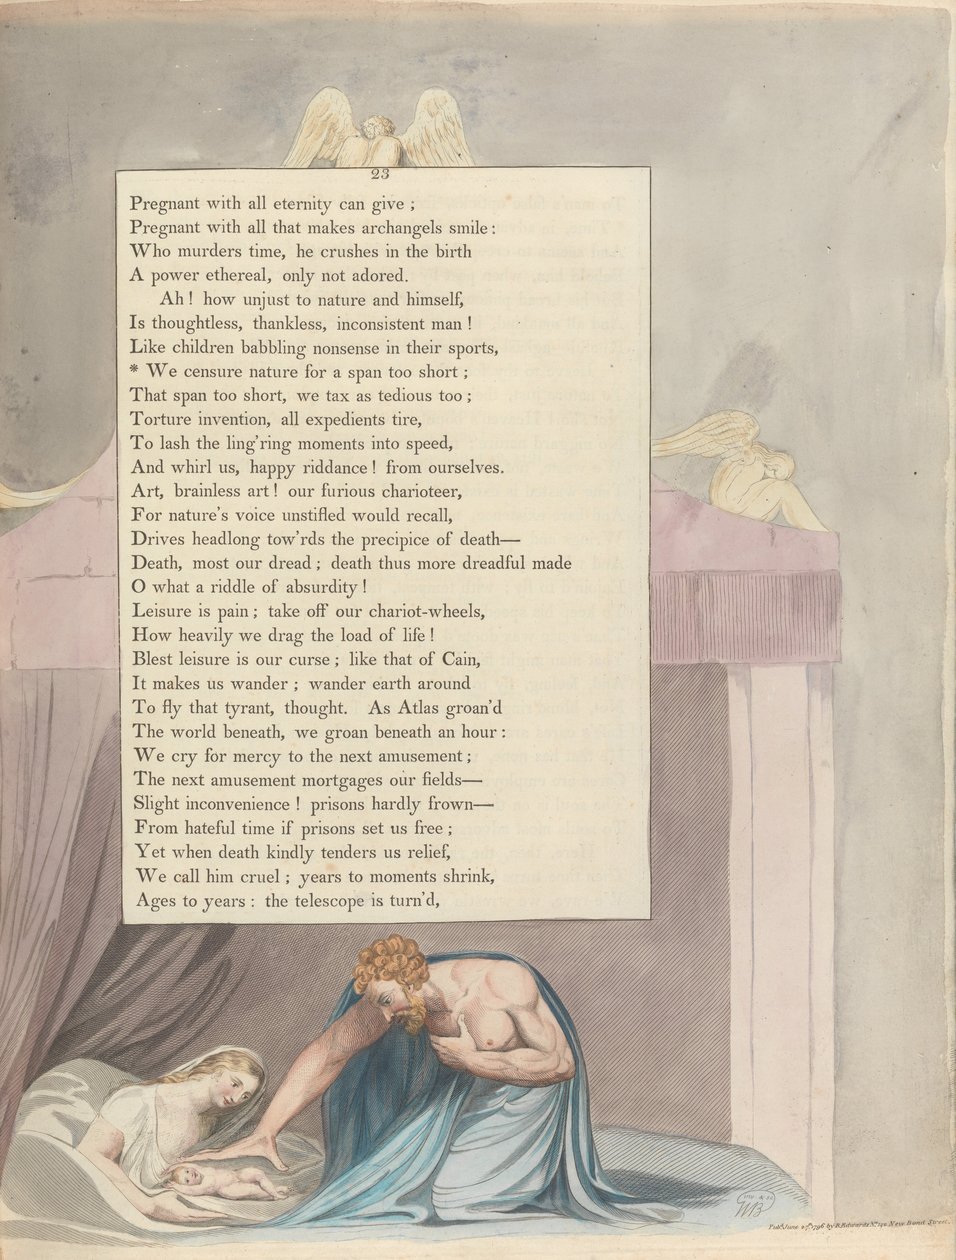 23
Pregnant with all eternity can give ;
Pregnant with all that makes archangels smile :
Who murders time, he crushes in the birth
A power ethereal, only not adored.
Ah ! how unjust to nature and himself,
Is thoughtless, thankless, inconsistent man !
Like children babbling nonsense in their sports,
* We censure nature for a span too short ;
That span too short, we tax as tedious too ;
Torture invention, all expedients tire,
To lash the ling'ring moments into speed,
And whirl us, happy riddance ! from ourselves.
Art, brainless art ! our furious charioteer,
For nature's voice unstifled would recall,
Drives headlong tow'rds the precipice of death—
Death, most our dread ; death thus more dreadful made
O what a riddle of absurdity !
Leisure is pain ; take off our chariot-wheels,
How heavily we drag the load of life !
Blest leisure is our curse ; like that of Cain,
It makes us wander ; wander earth around
To fly that tyrant, thought. As Atlas groan'd
The world beneath, we groan beneath an hour :
We cry for mercy to the next amusement ;
The next amusement mortgages our fields—
Slight inconvenience ! prisons hardly frown—
From hateful time if prisons set us free ;
Yet when death kindly tenders us relief,
We call him cruel ; years to moments shrink,
Ages to years : the telescope is turn'd,
inv & sc
WB
Pubd. June 27th. 1796 by R. Edwards No. 142 New Bond Street.